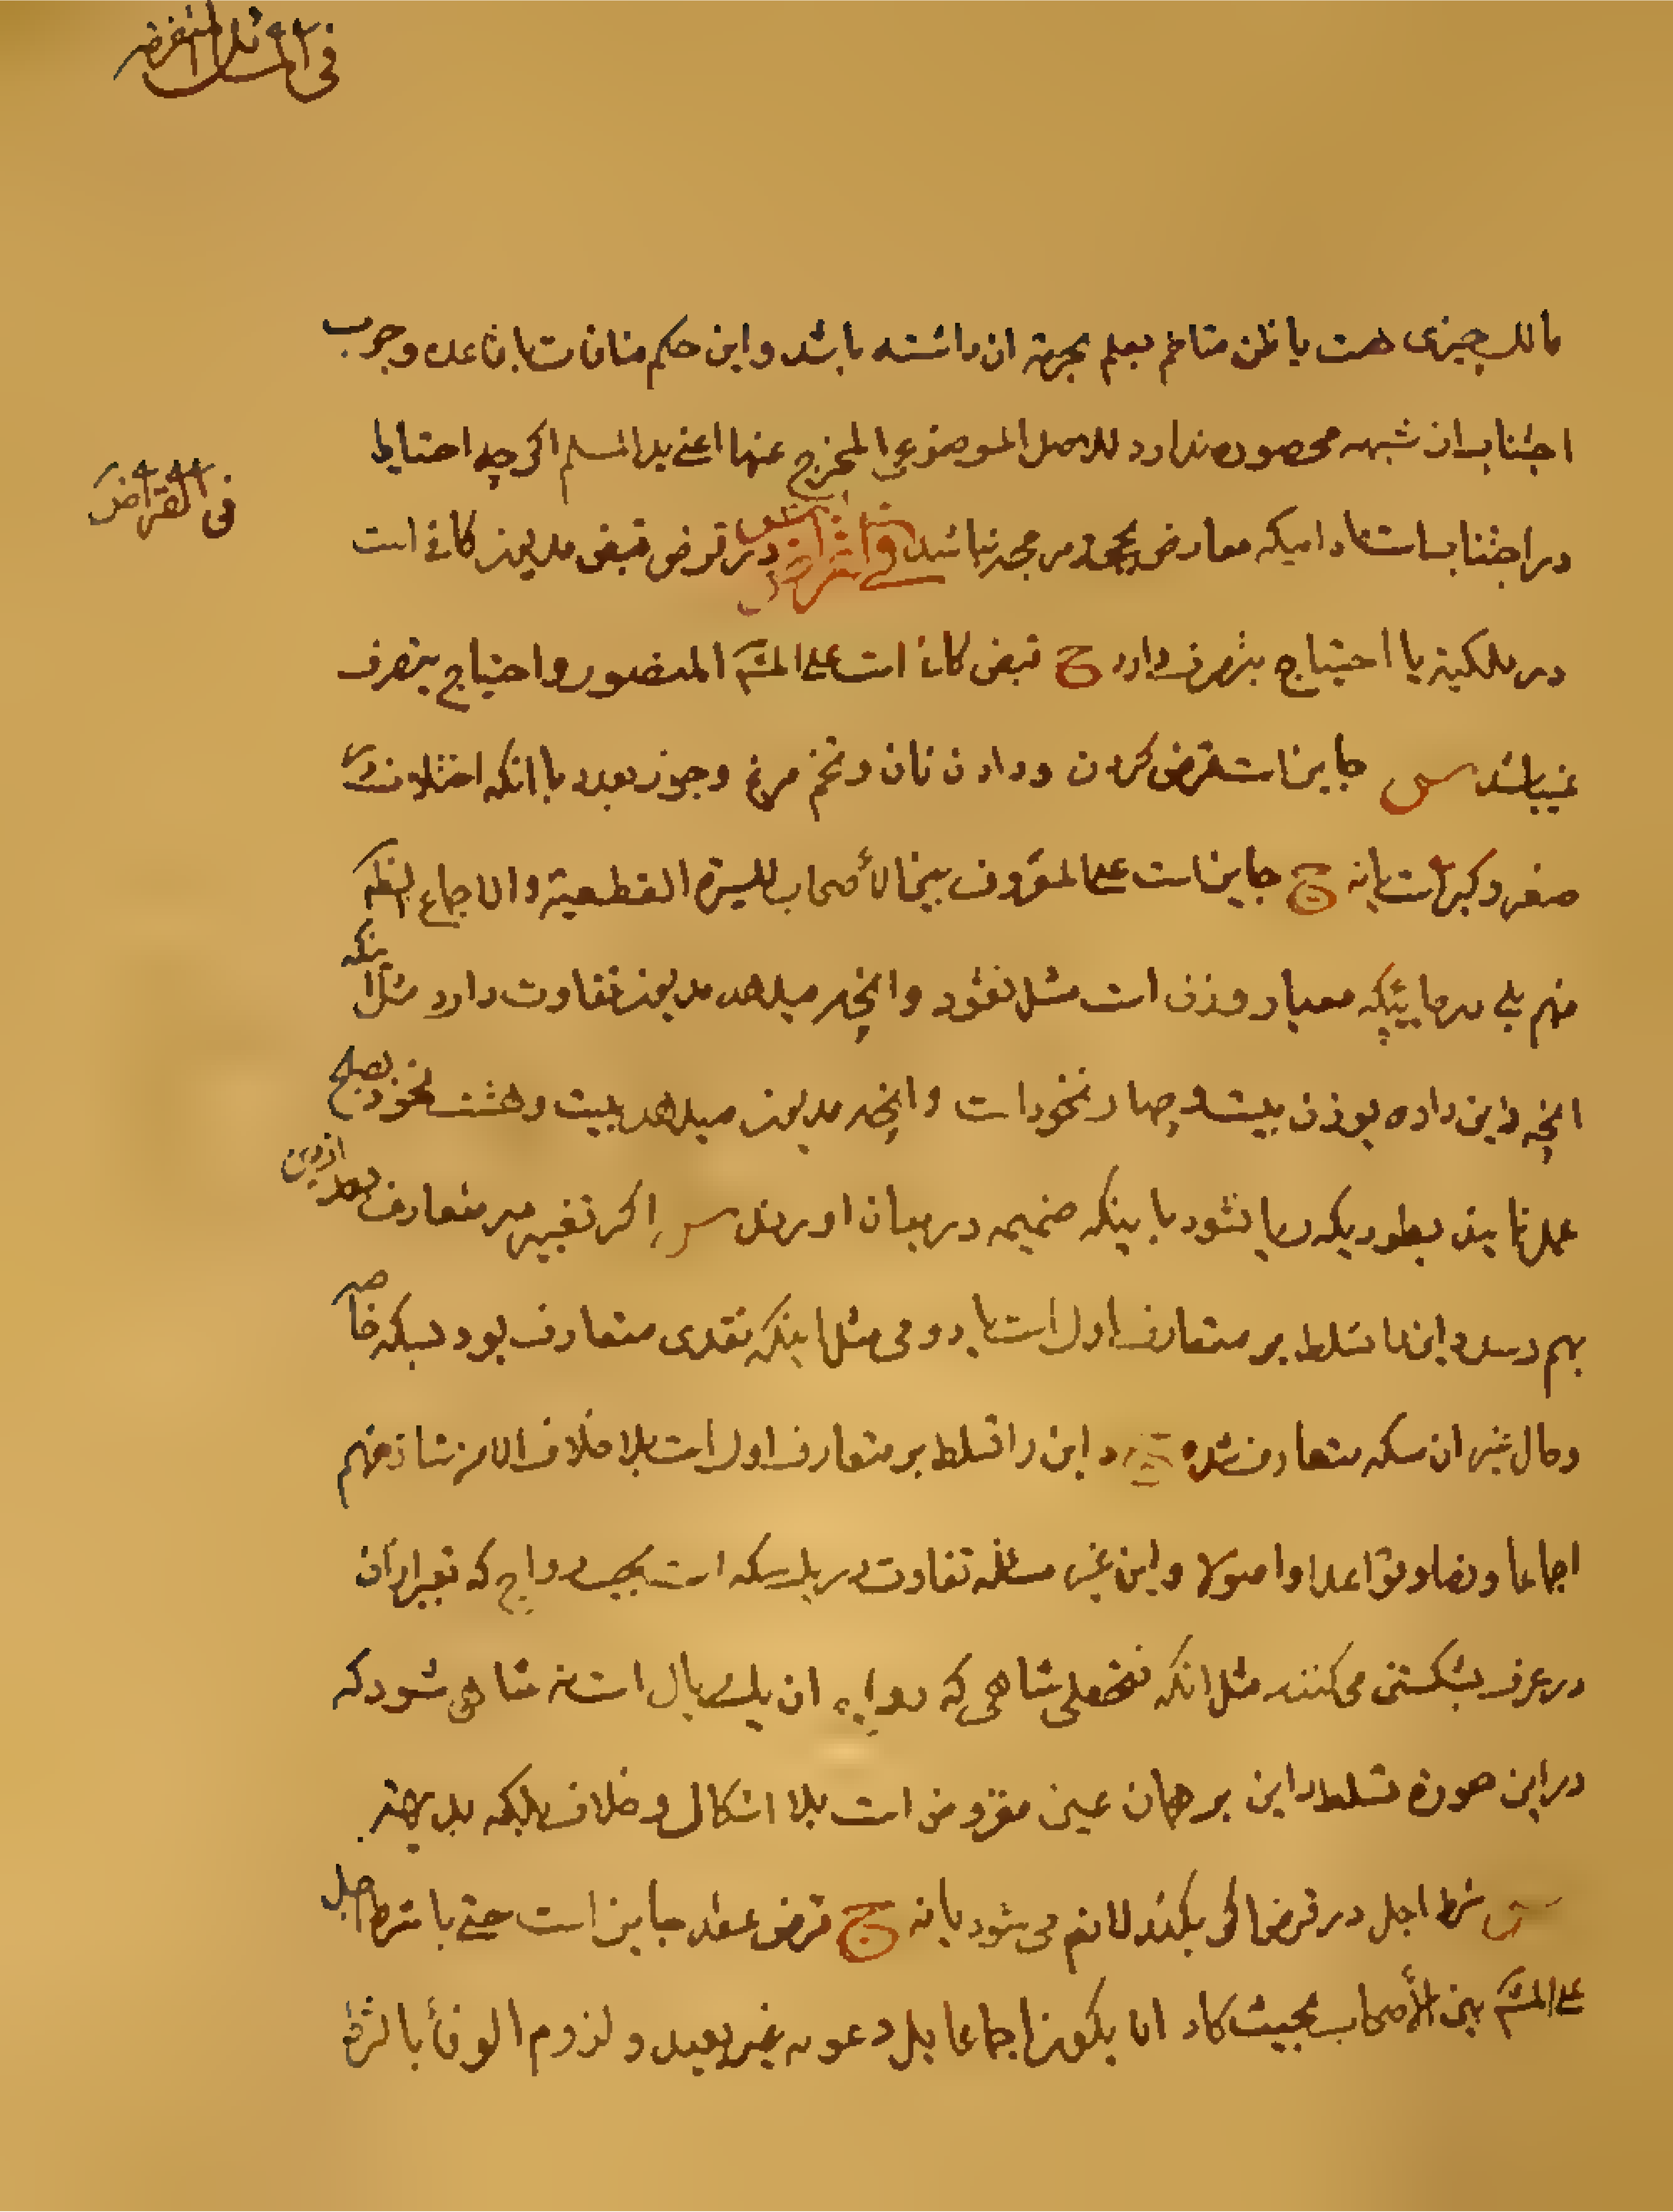 فی المسائل المتفرقه
مالک چیزی هست یا ظن متاخم بعلم بحرمة ان داشته باشد و این حکم منافات با قاعده وجوب
اجتناب از شبهه محصوره ندارد للاصل الموضوعی المخرج عنها اعنی ید المسلم اکر چه احتیاط
فی القراض
در اجتناب است مادامیکه معارض بجهة مرجحه نباشد فی اقتراض س در قرض قبض مدیون کافی است
در ملکیة یا احتیاج بتصرف دارد ج قبض کافی است علی المشهـ المنصور و احتیاج بتصرف
نمیباشد س جایز است قرض کردن و دادن نان و تخم مرغ و جوز بعدد با انکه اختلاف در
صغر و کبر است یا نه ج جایز است علی المعروف بین الأصحاب للسیرة القطعیة و الاجماع الظـ
منهم بلی در جاییکه معیار وزن است مثل نقود و انچه میدهد مدیون تفاوت دارد مثلا انکه
انچه داین داده بوزن بیست و چهار نخود است و انچه مدیون میدهد بیست و هشت نخود بصلح
عمل نمایند بطوریکه ربا نشود باینکه ضمیمه در میان اورند س اکر تغییر در متعارف بعد از دین
بهم رسد داین را تسلط بر متعارف اول است یا دومی مثل اینکه نقدی متعارف بود بسکه خاصه
و حال غیر ان سکه متعارف شده ج داین را تسلط بر متعارف اول است بلا خلاف الا من شاذ منهم
اجماعا و نصا و قواعدا و اصولا و این غیر مسئله تفاوت در یک سکه است بحسب رواج که تعبیر از ان
در عرف بشکستن می کنند مثل انکه فتحعلی شاهی که رواج ان یک ریال است نه شاهی شود که
در این صورة تسلط داین بر همان عین مقروض است بلا اشکال و خلاف بلکه بدل بهتر
س شرط اجل در قرض اکر بکند لازم می شود یا نه ج قرض عقد جایز است حتی با شرط اجل
علی المشهـ بین الأصحاب بحیث کاد ان یکون اجماعا بل دعوـه غیر بعید و لزوم الوفأ بالشرط